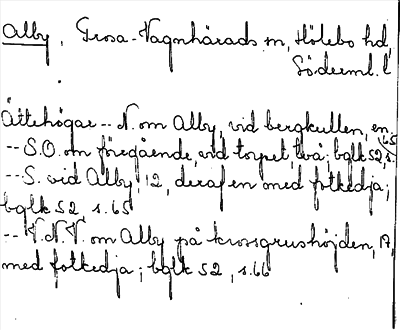 Alby, Trosa-Vagnhärads sn, Hölebo hd,
Söderml. l
Ättehögar -- N. om Alby, vid bergkullen, en, 65
-- S.O. om föregående, vid torpet, två; bglk 52, s.
-- S. vid Alby 12, deraf en med fotkedja;
bglk 52, s. 65
-- V.N.V. om Alby på krossgrushöjden, 17,
med fotkedja; bglk 52, s. 66